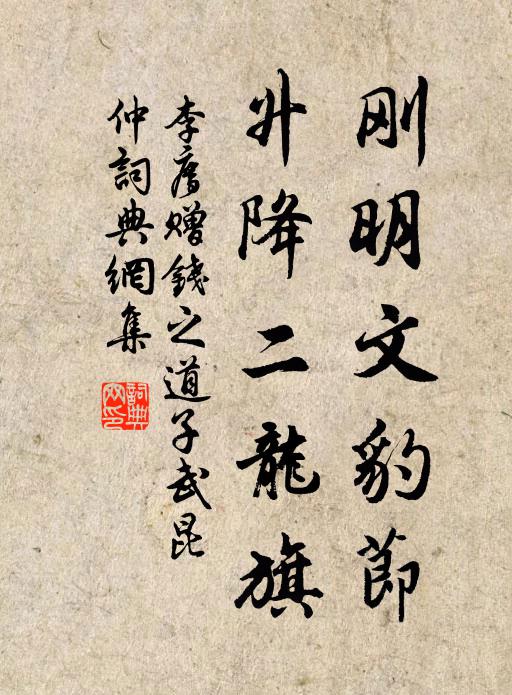 刚明文豹節
升降二龍旗
李廌贈錢之道子武昆
仲詞典網集
詞典網印